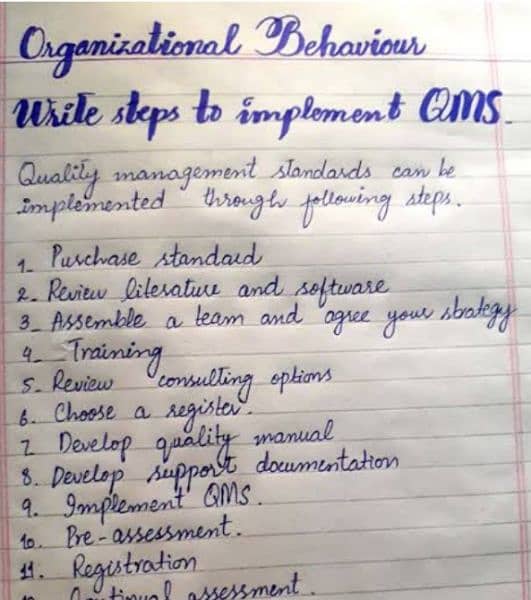 Organizational Behaviour
Write steps to implement QMS.
Quality management standards can be
implemented through following steps.
1_ Purchase standard
2_ Review literature and software
3_ Assemble a team and agree your strategy
4_ Training
5_ Review consulting options
6. Choose a register.
7 Develop quality manual
8. Develop support documentation
9. Implement QMS.
10. Pre-assessment.
11. Registration
12. Continual assessment.